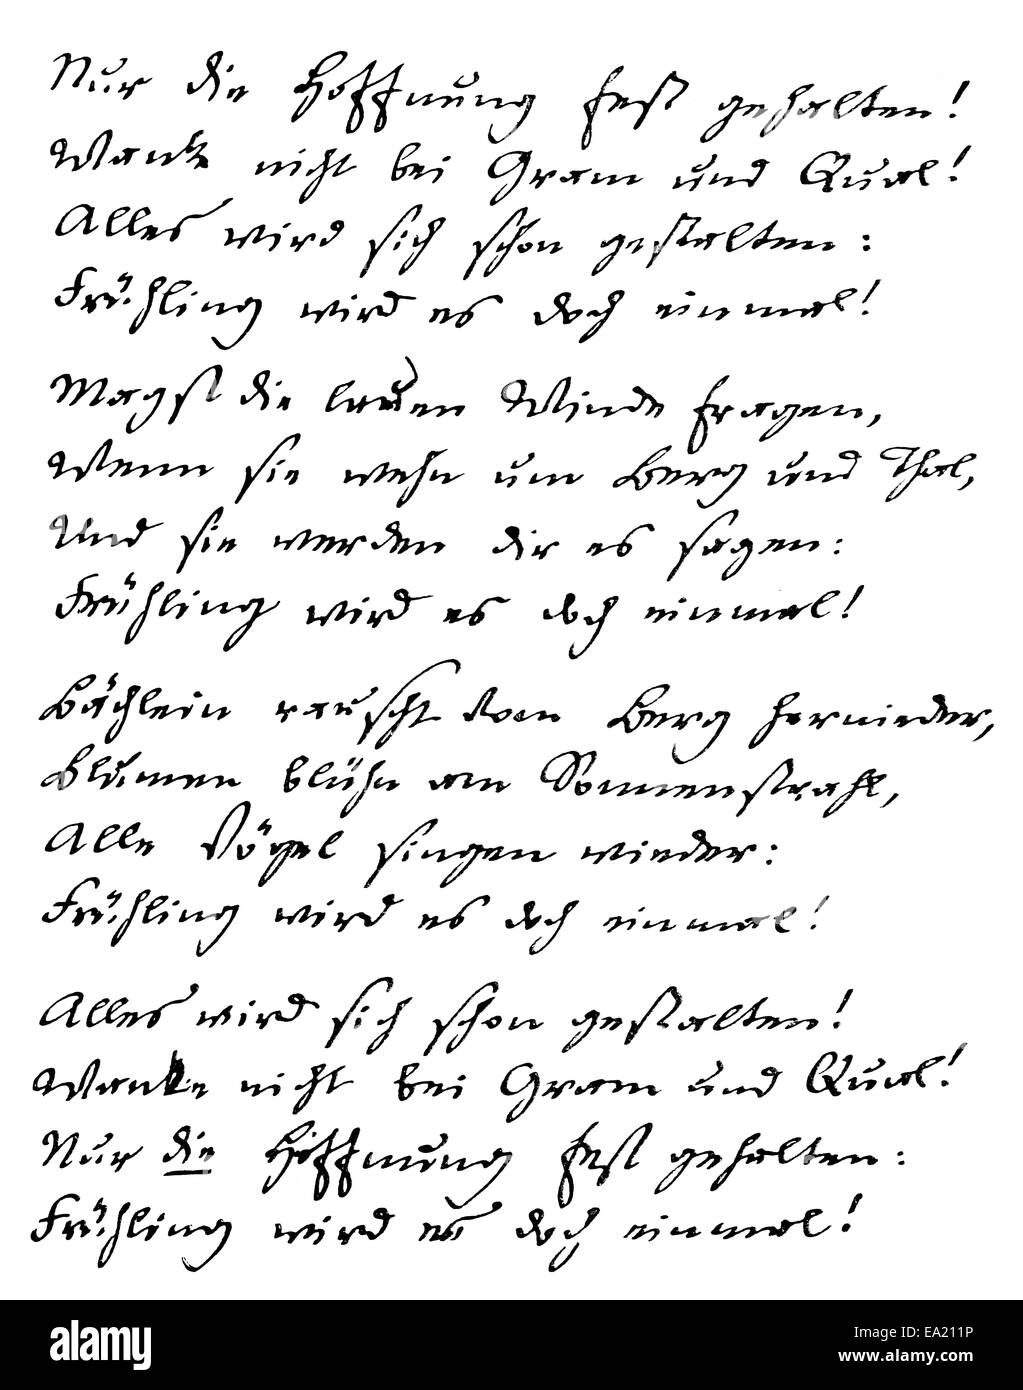 Nur die Hoffnung fest gehalten!
Wanke nicht bei Gram und Qual!
Alles wird sich schon gestalten:
Frühling wird es doch einmal!
Magst die lauen Winde fragen,
Wenn sie wehn um Berg und Thal,
Und sie werden dir es sagen:
Frühling wird es doch einmal!
Bächlein rauscht vom Berg hernieder,
Blumen blühn am Sonnenstrahl,
Alle Vögel singen wieder:
Frühling wird es doch einmal!
Alles wird sich schon gestalten!
Wanke nicht bei Gram und Qual!
Nur die Hoffnung fest gehalten:
Frühling wird es doch einmal!
alamy
Image ID: EA211P
www.alamy.com